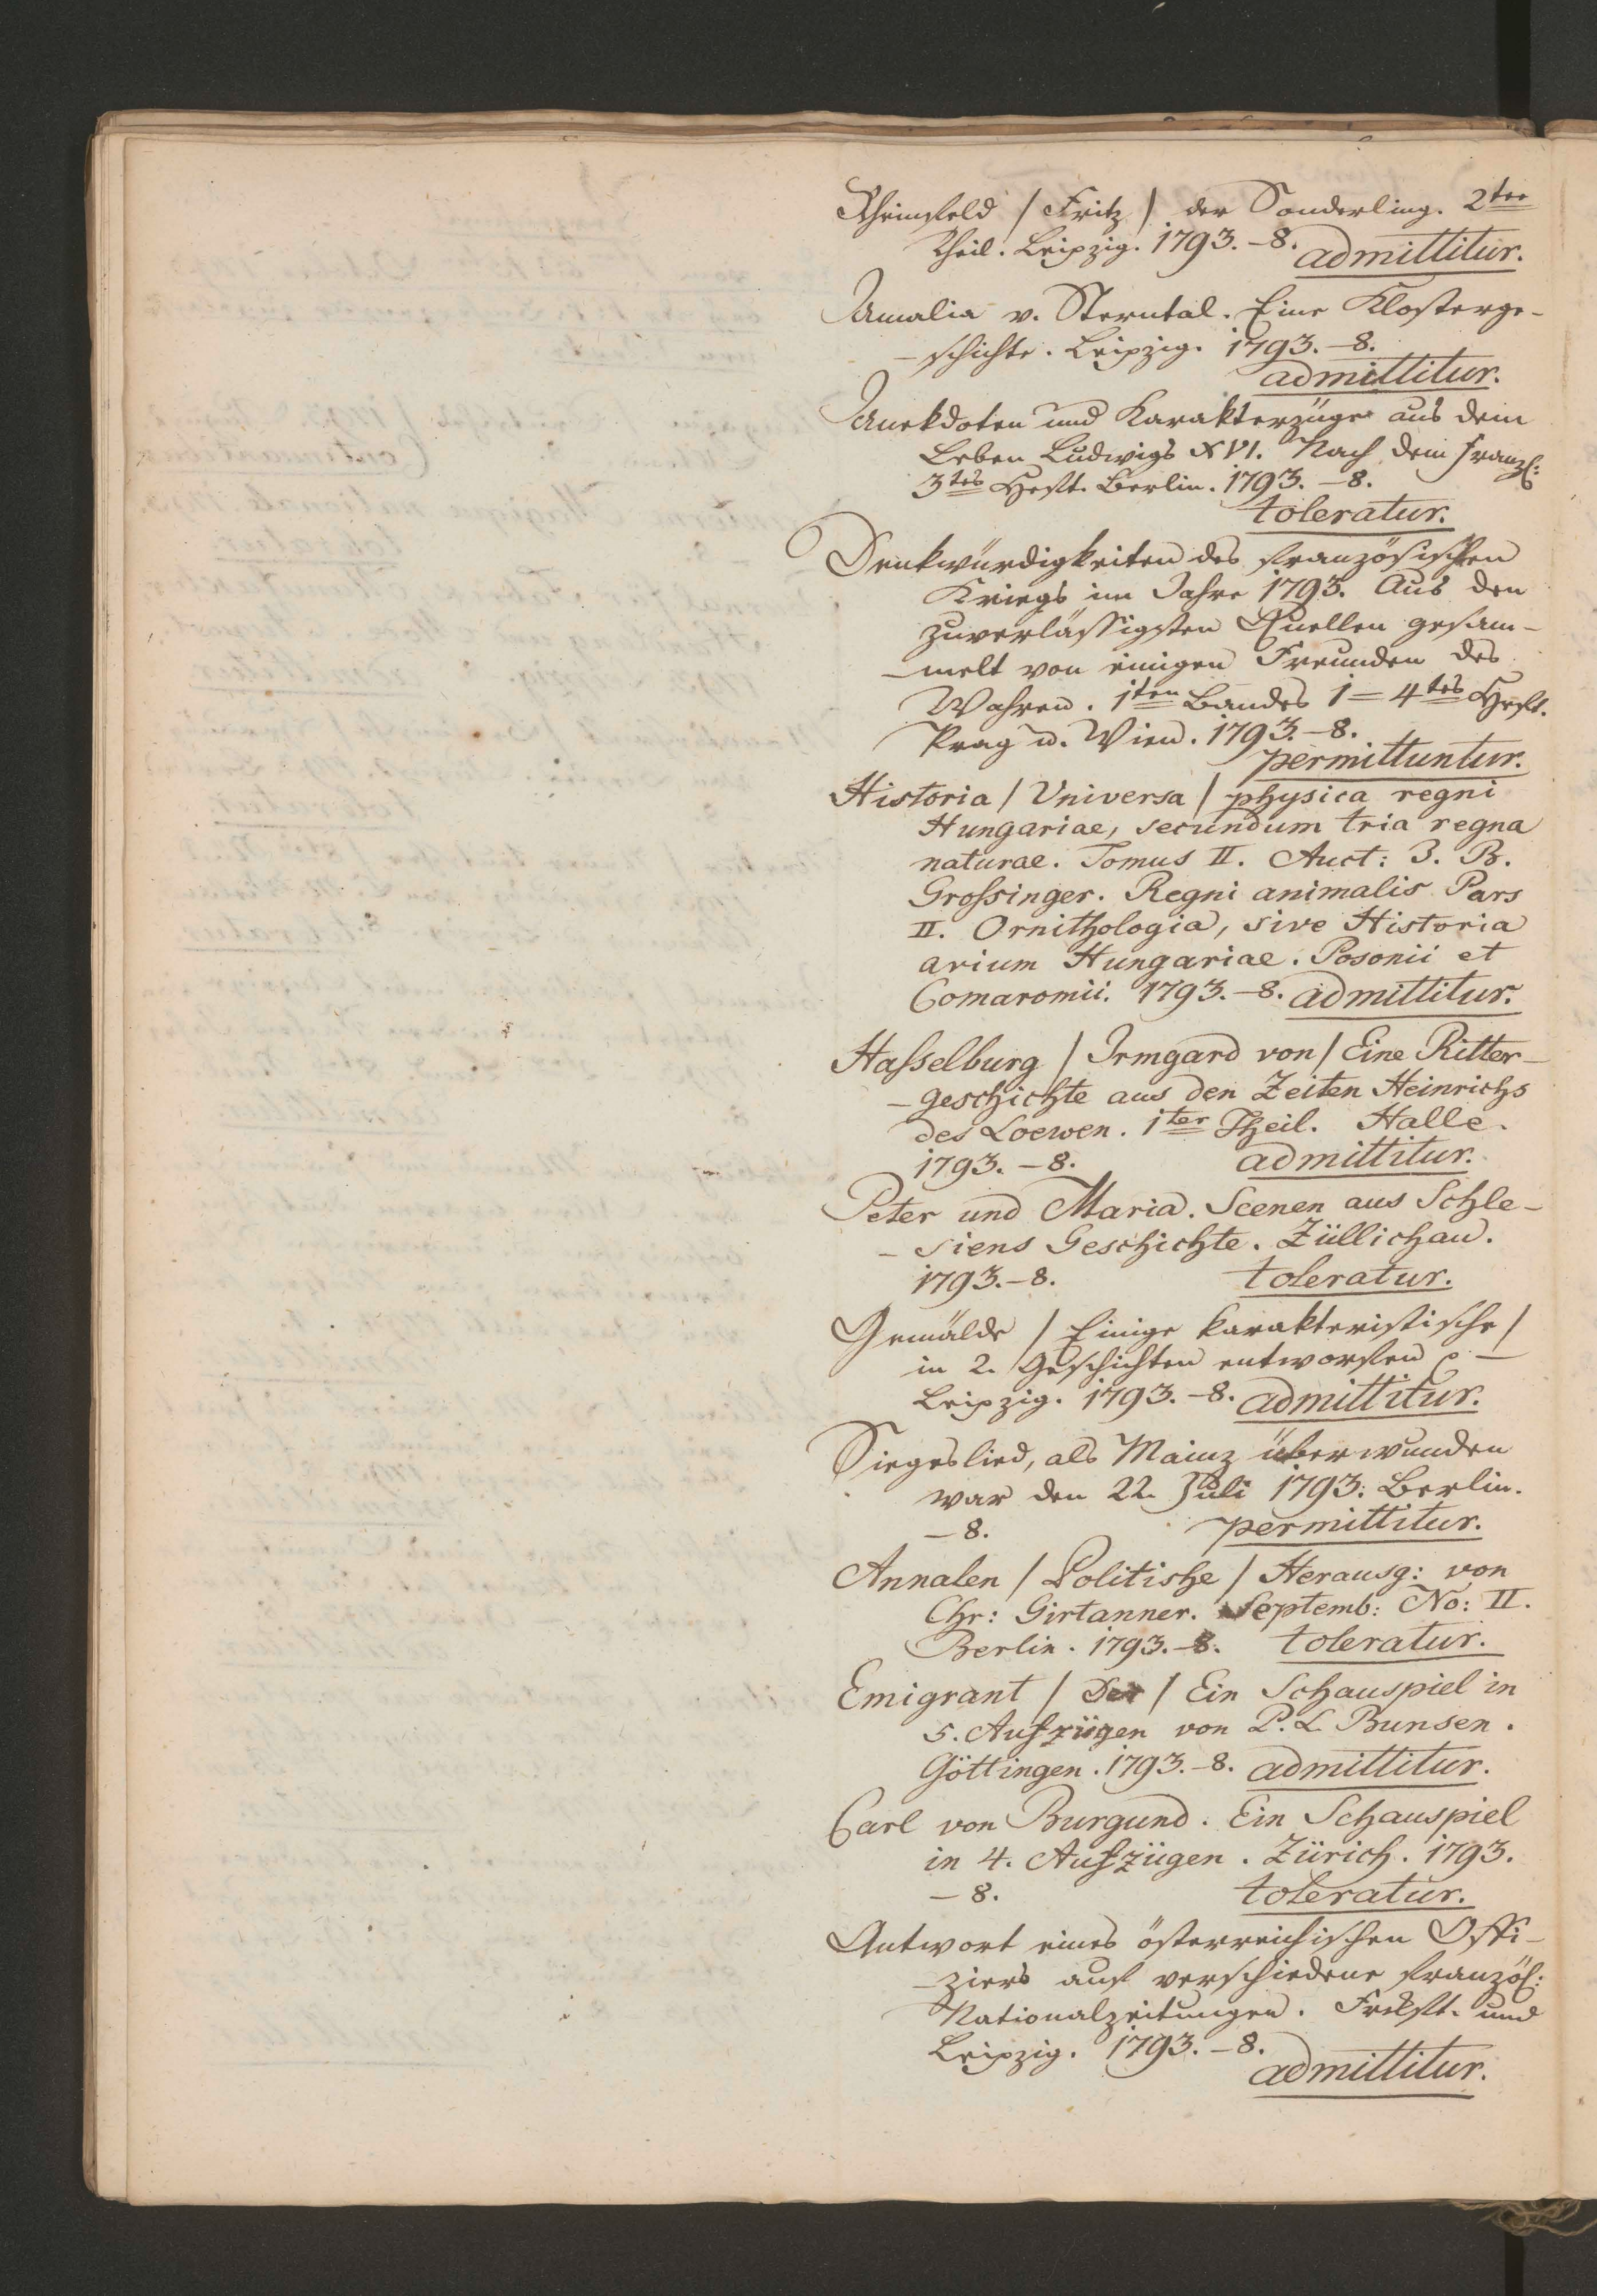 Rheinfeld / Fritz / der Sonderling. 2ter
Theil. Leipzig. 1793. – 8. admittitur.
Amalia v. Sterntal. Eine Klosterge-
– schichte. Leipzig. 1793. – 8.
admittitur.
Anekdoten und Karakterzüge aus dem
Leben Ludwigs XVI. Nach dem franz:
3tes Heft. Berlin. 1793. – 8.
toleratur.
Denkwürdigkeiten des französischen
Kriegs im Jahre 1793. Aus den
zuverlässigsten Quellen gesam-
– melt von einigen Freunden des
Wahren. 1ten Bandes 1 = 4tes Heft.
Prag u. Wien. 1793. – 8.
permittuntur.
Historia / Universa / physica regni
Hungariae, secundum tria regna
naturae. Tomus II. Auct: J. B.
Grossinger. Regni animalis Pars
II. Ornithologia, sive Historia
avium Hungariae. Posonii et
Comaromii. 1793. – 8. admittitur.
Hasselburg / Irmgard von / Eine Ritter-
– geschichte aus den Zeiten Heinrichs
des Loewen. 1ter Theil. Halle.
1793. – 8. admittitur.
Peter und Maria. Scenen aus Schle-
– siens Geschichte. Züllichau.
1793. – 8. toleratur.
Gemälde / Einige karakteristische /
in 2. Geschichten entworfen –
Leipzig. 1793. – 8. admittitur.
Siegeslied, als Mainz überwunden
war den 22. Juli 1793. Berlin.
– 8. permittitur.
Annalen / Politishe / Herausg: von
Chr: Girtanner. Septemb: No: II.
Berlin. 1793. – 8. toleratur.
Emigrant / Der / Ein Schauspiel in
5. Aufzügen von P. L. Bunsen.
Göttingen. 1793. – 8. admittitur.
Carl von Burgund. Ein Schauspiel
in 4. Aufzügen. Zürich. 1793.
– 8. toleratur.
Antwort eines österreichischen Offi-
– ziers auf verschiedene französ:
Nationalzeitungen. Frkft. und
Leipzig. 1793. – 8.
admittitur.